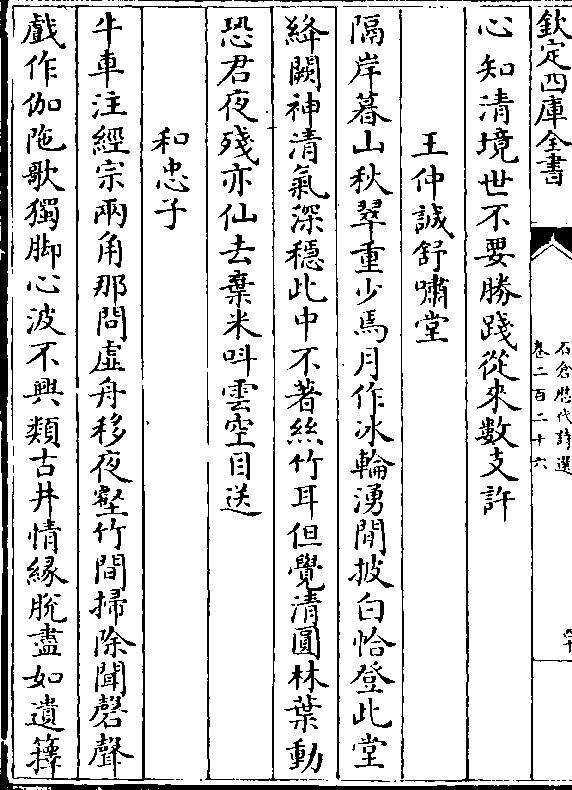 欽定四庫全書
石倉歷代詩選
卷二百二十六
四十
心知清境世不要勝踐從來數支許
王仲誠舒嘯堂
隔岸暮山秋翠重少焉月作冰輪湧閒披白恰登此堂
絳闕神清氣深穩此中不著絲竹耳但覺清圓林葉動
恐君夜殘亦仙去棄米呌雲空目送
和忠子
牛車注經宗兩角那問虛舟移夜壑竹間掃除聞磬聲
戲作伽陁歌獨脚心波不興類古井情縁脫盡如遺籜